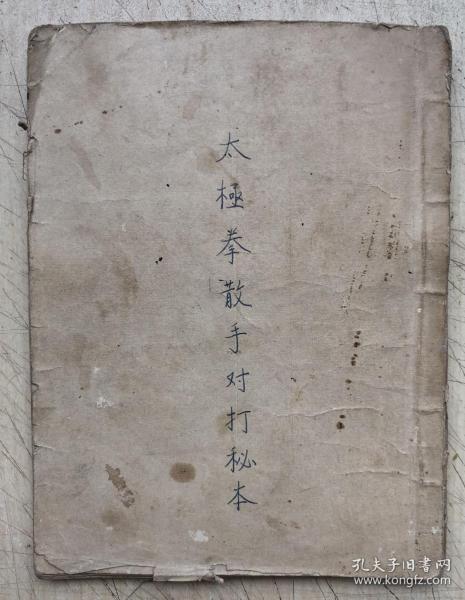 太極拳散手对打秘本
孔夫子旧书网
www.kongfz.com